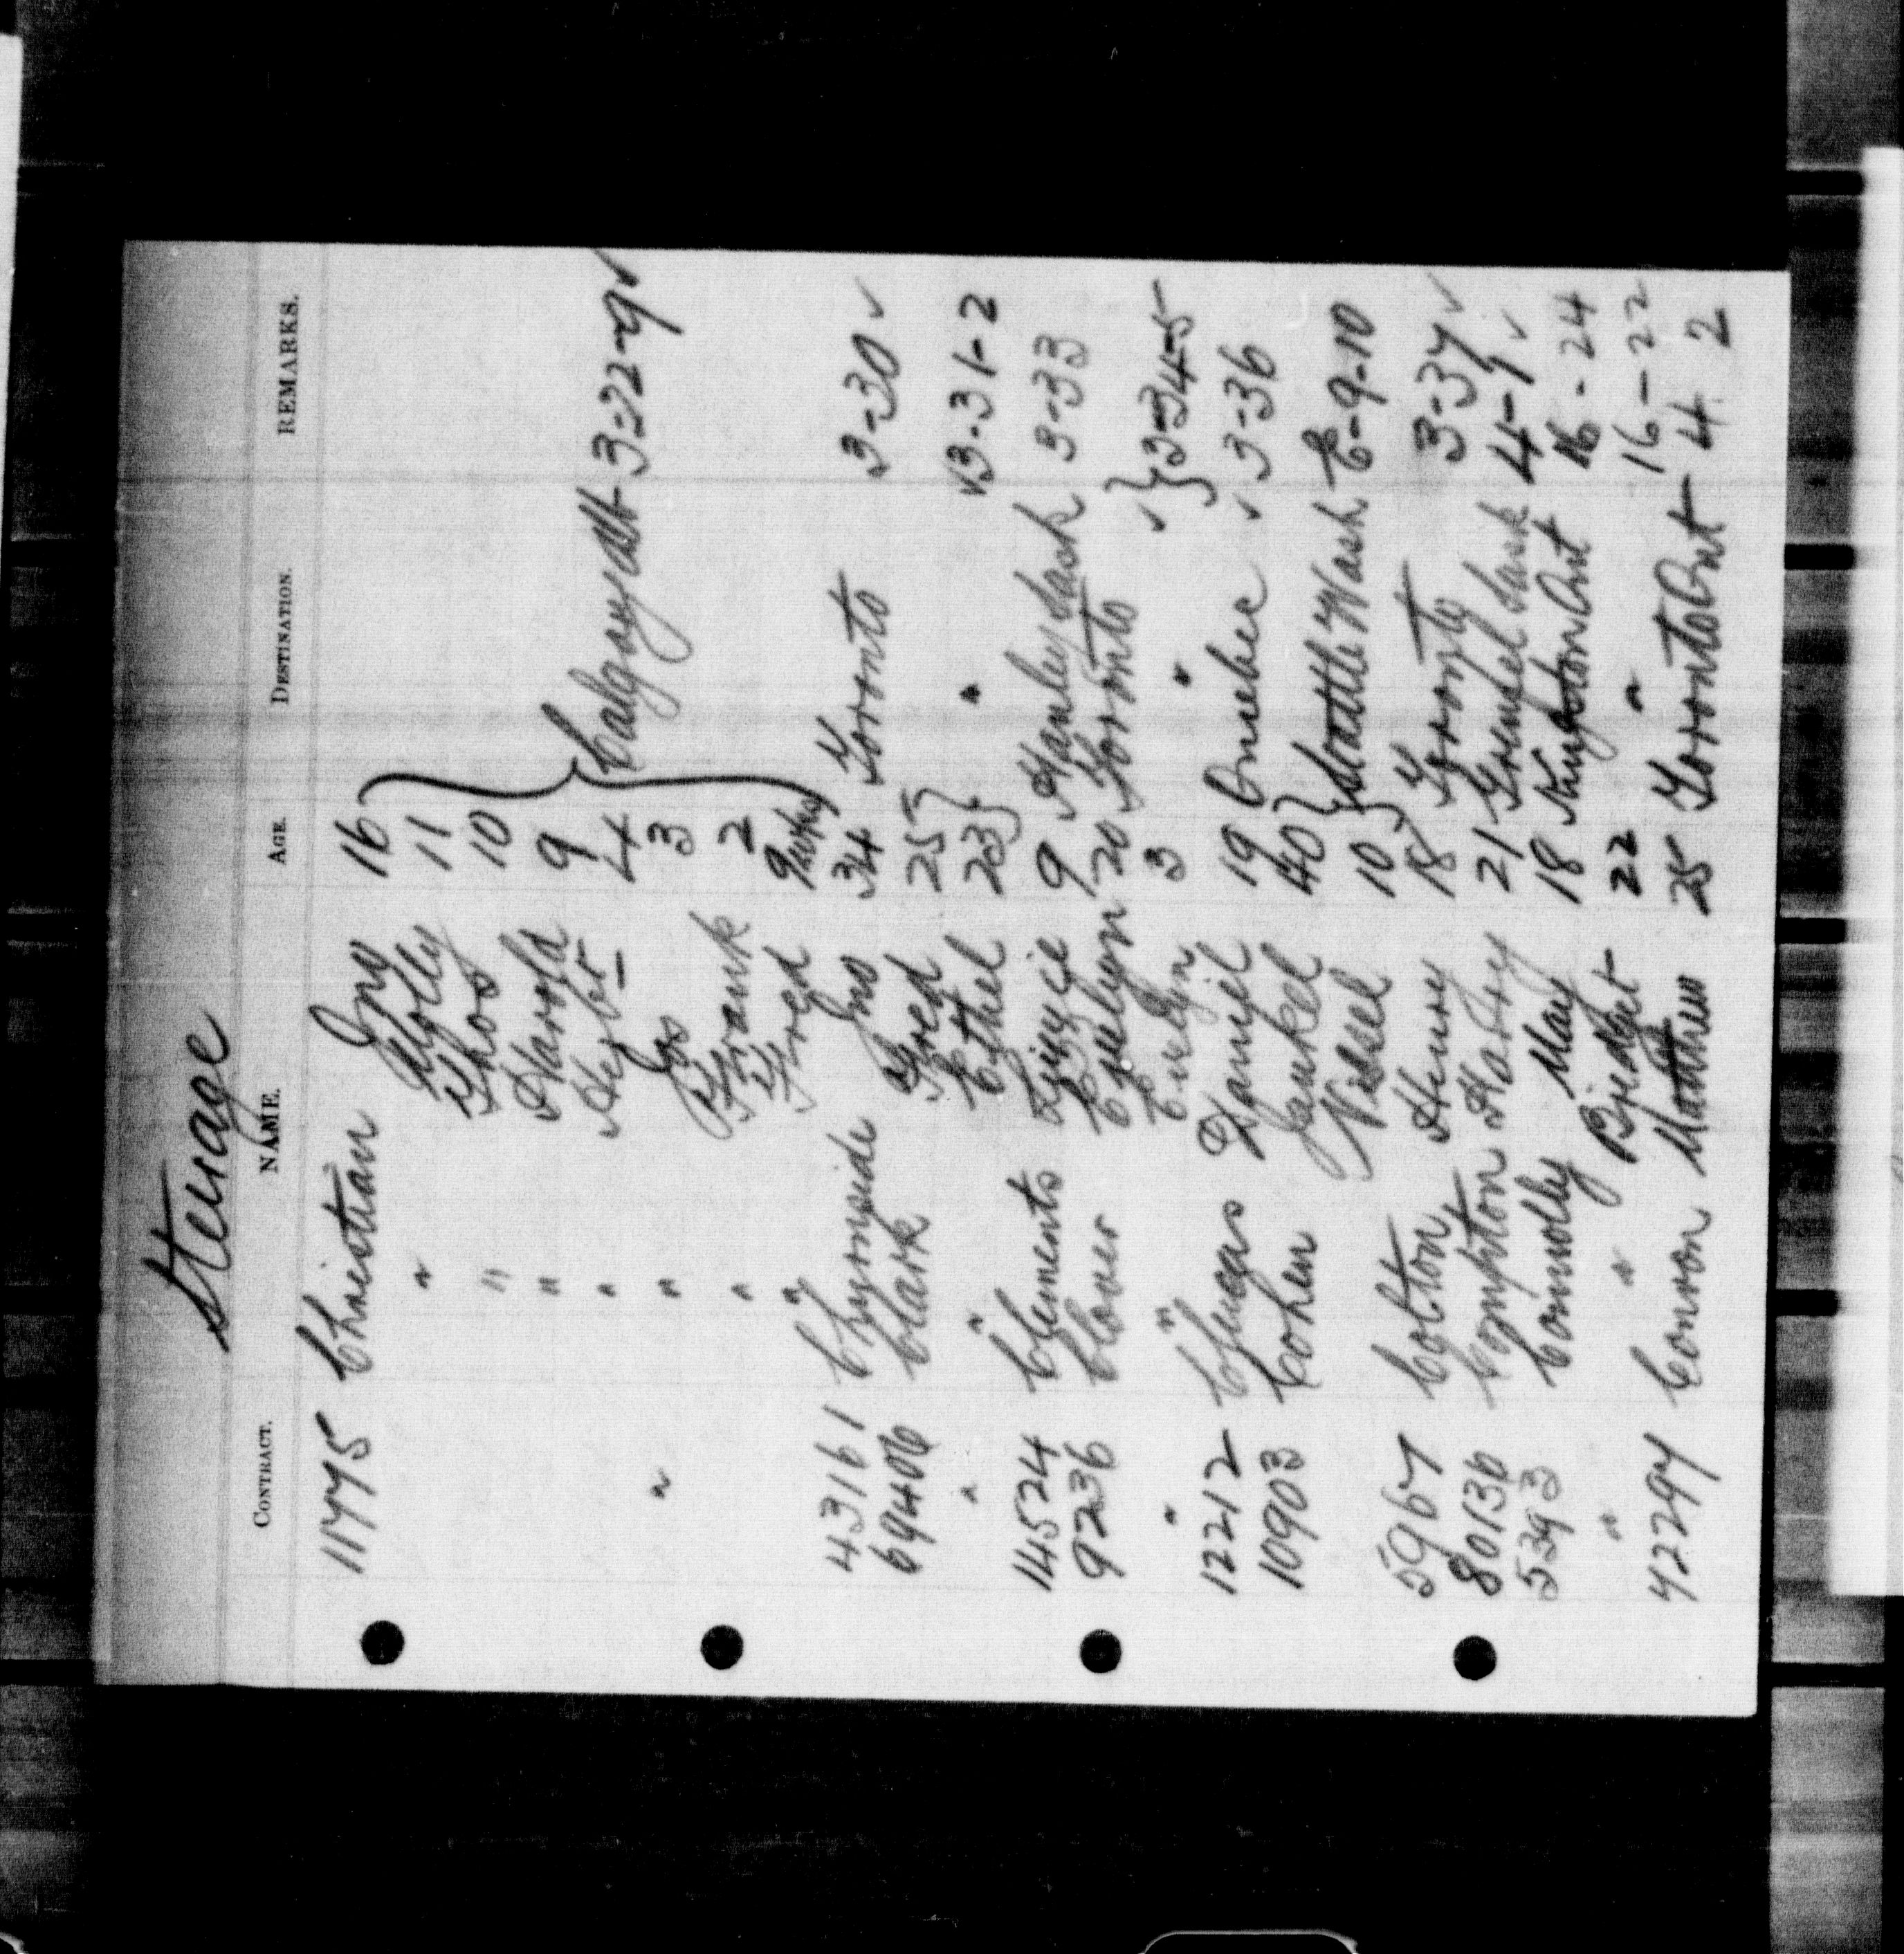 Steerage
CONTRACT. NAME. AGE. DESTINATION. REMARKS.
11775 Christian Jno 16
" Molly 11
" Thos 10
" Harold 9
" Herbt 4 Calgary Alt 3-22-9 ✓
" " Jos 3
" Frank 2
" Fred 9 mths
43161 Chyrnside Jno 34 Toronto 3-30 ✓
69406 Clark Fred 25
" " Ethel 23 " ✓3-31-2
14524 Clements Lizzie 9 Hanley Sask 3-33
9236 Clover Evelyn 20 Toronto
" " Evelyn 3 " ✓ 3-34-5
12212 Daniel 19 Quebec ✓ 3-36
10903 Cohen Jankel 40
Nissel 10 Seattle Wash E-9-10
5967 Colton Henry 18 Toronto 3-37 ✓
80136 Compton Harry 21 Grenfel Sask 4-1 ✓
5393 Connolly May 18 Kingston Ont 16-24
" " Bridget 22 " 16-22
72297 Conron Matthew 25 Toronto Ont 4 2